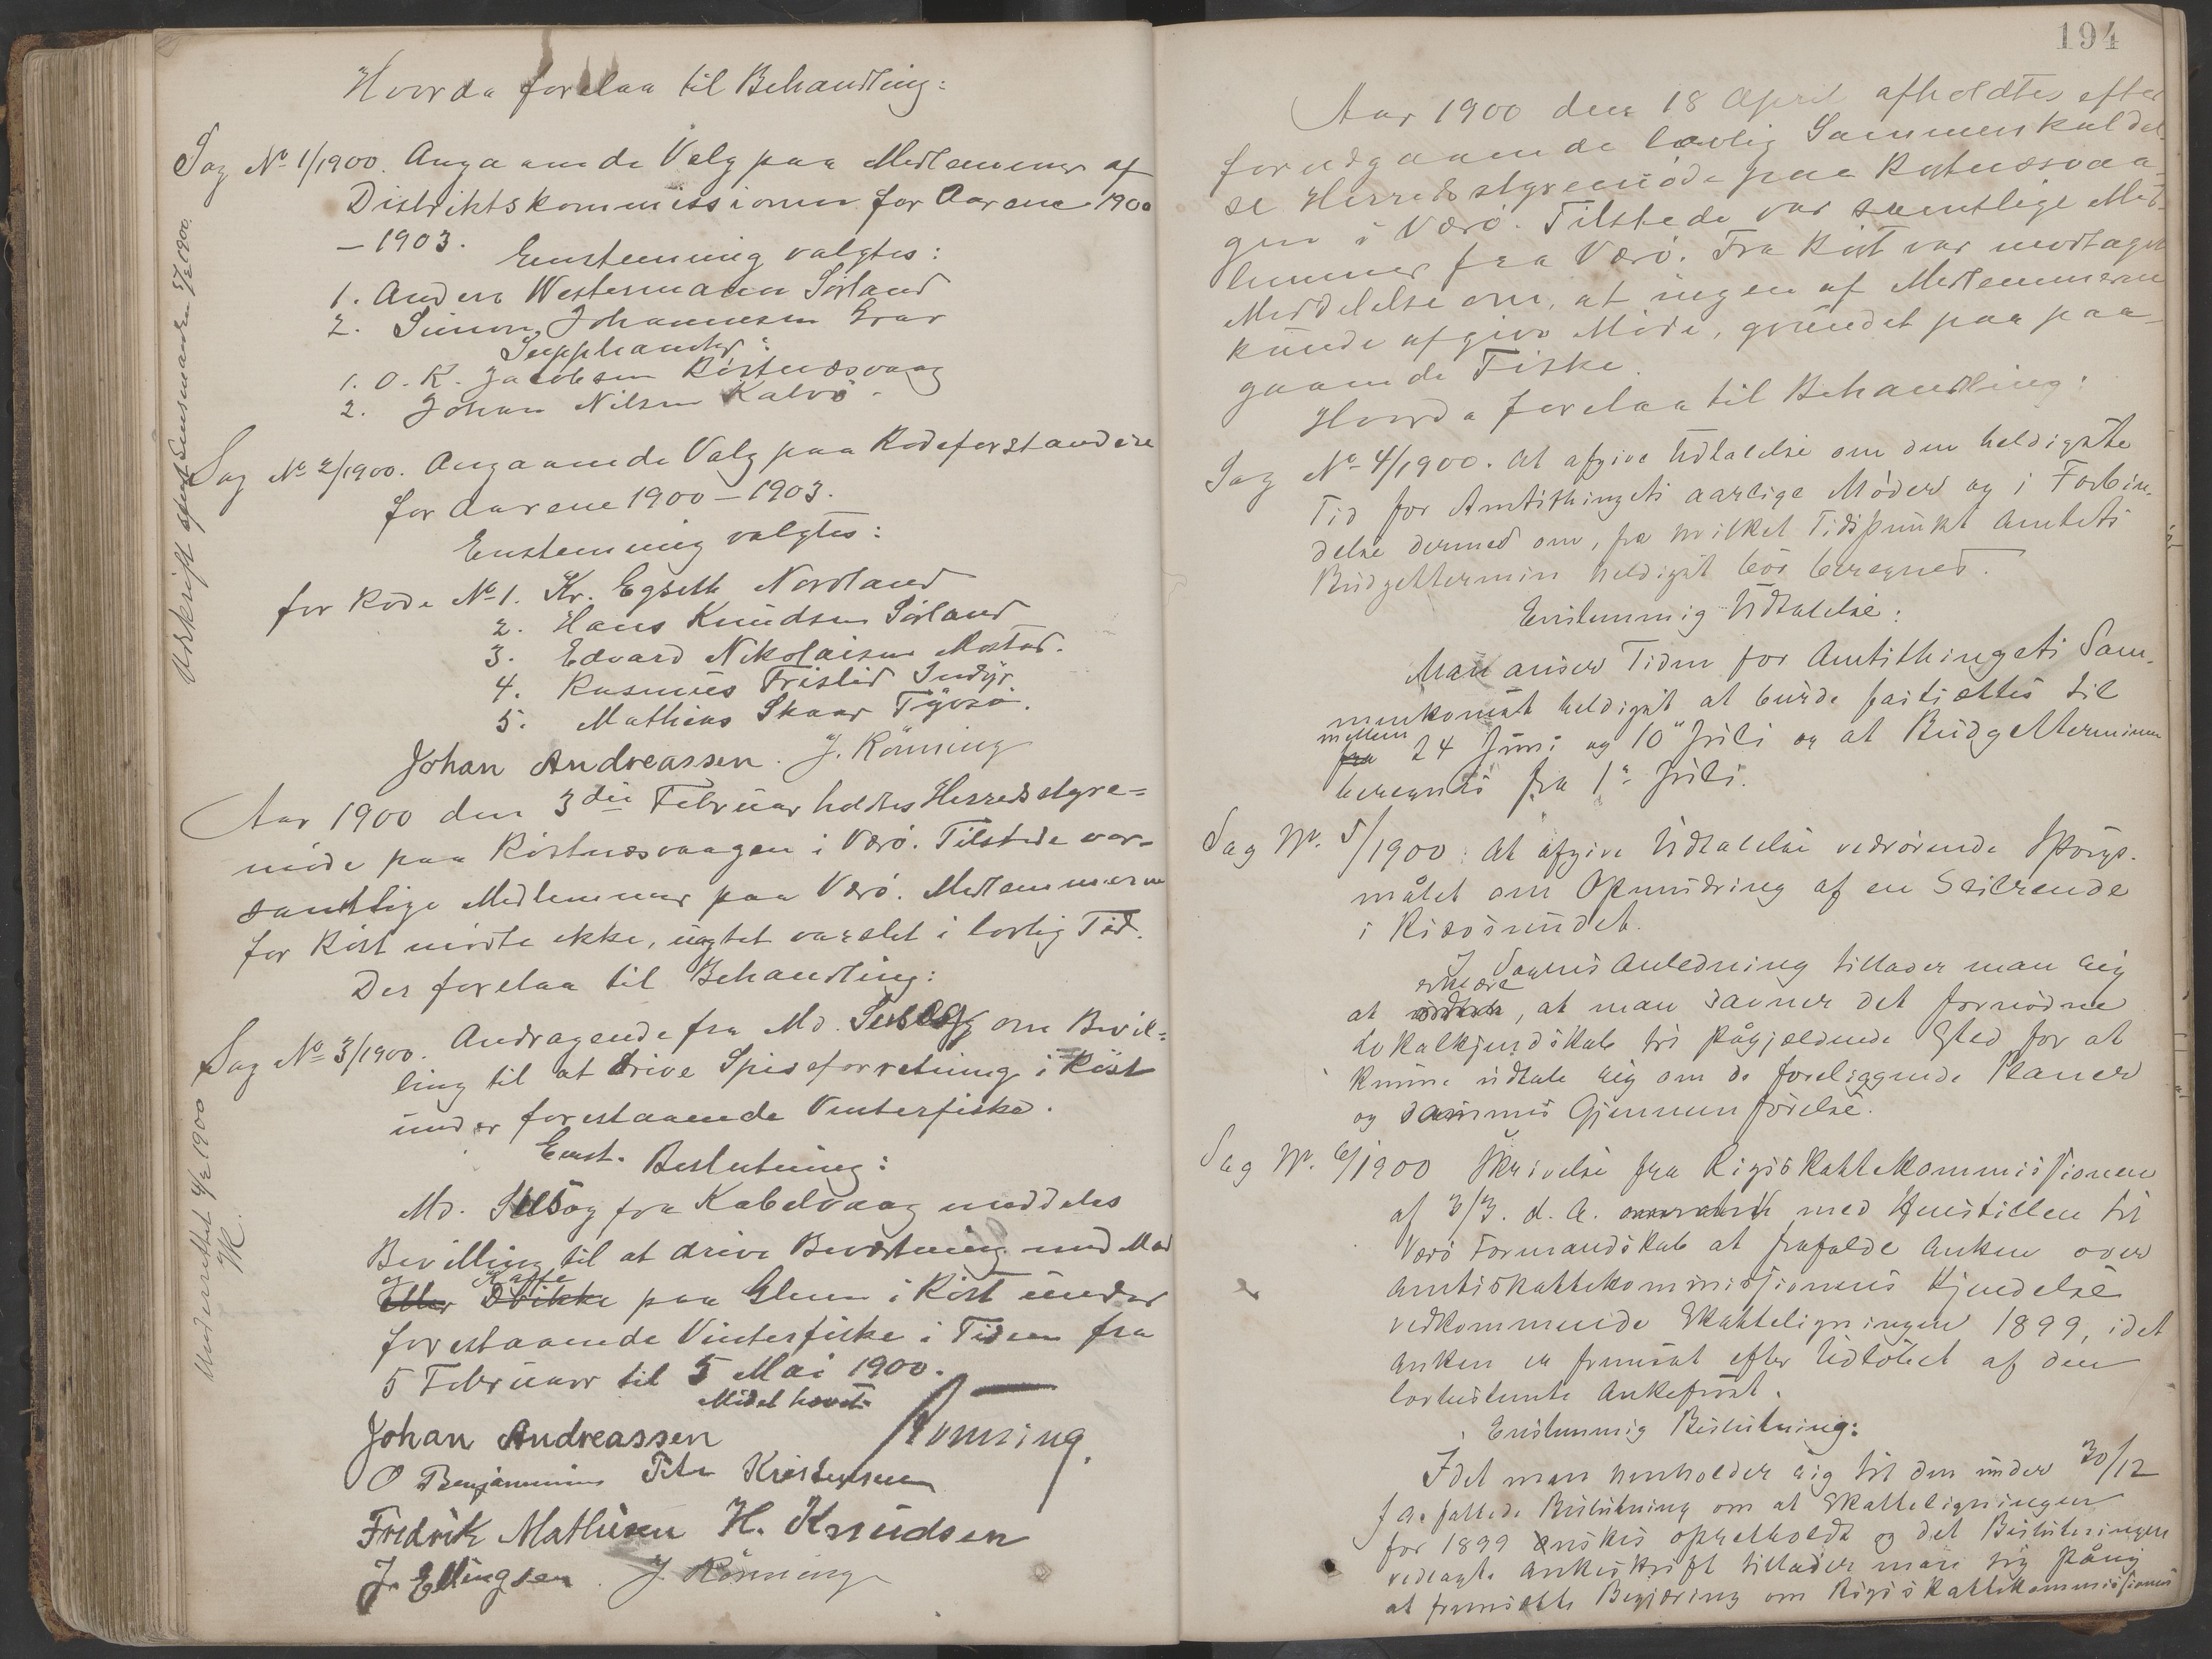 Hvorda forelaa til Behandling:
Sag No 1/1900. Angaaende Valg paa Medlemmer af
Distriktskommissionen for Aarene 1900
– 1903.
Enstemmig valgtes:
1. Anders Westermann Sörland
2. Simon Johannesen
Suppleanter:
1. O. K. Jacobsen Röstnæsvaag
2. Johan Nilsen Kalvö
Udskrift sendt Lensmanden 5/2 1900.
Sag No 2/1900. Angaaende Valg paa Rodeforstandere
for Aarene 1900 – 1903.
Enstemmig valgtes:
for Rode No 1. Kr. Egseth Nordland
2. Hans Knudsen Sörland
3. Edvard Nikolaisen Mostad.
4. Rasmus Tristid Indyr
5. Mathias Skaar Tyvsö.
Johan Andreassen. J. Rönning
Aar 1900 den 3die Februar holdtes Herredsstyre=
möde paa Röstnæsvaagen i Værö. Tilstede var
samtlige Medlemmer paa Værö. Medlemmerne
for Röst mödte ikke, uagtet varslet i lovlig Tid.
Der forelaa til Behandling:
Sag No 3/1900. Andragende fra Md. Selsög om Bevil=
ling til at drive Spiseforretning i Röst
under forestaaende Vinterfiske.
Enst. Beslutning:
Md. Selsög fra Kabelvaag meddeles
Bevilling til at drive Beværtning med Mad
og Kaffe
Eller Drikke paa Glea i Röst under
forestaaende Vinterfiske i Tiden fra
5 Februar til 5 Mai 1900.
Underrettet 4/2 1900
JR.
Mödet hævet
Johan Andreassen Rönning.
O Benjaminsen Peter Kristensen
Fredrik Mathisen H. Knudsen
J. Ellingsen. J Rönning
194
Aar 1900 den 18 April afholdtes efter
forudgaaende lovlig Sammenkaldel-
se Herredsstyremöde paa Röstnæsvaa-
gen i Værö. Tilstede var samtlige Med-
lemmer fra Værö. Fra Röst var modtaget
Meddelelse om, at ingen af Medlemmerne
kunde afgive Möde, grundet paa paa-
gaaende Fiske.
Hvorda forelaa til Behandling:
Sag No 4/1900. At afgive Udtalelse om den heldigste
Tid for Amtsthingets aarlige Möder og i Forbin-
delse dermed om, fra hvilket Tidspunkt Amtets
Budgettermin heldigst bör beregnes.
Enstemmig Udtalelse:
Man anser Tiden for Amtsthingets Sam-
menkomst heldigst at burde fastsættes til
mellem
fra 24 Juni og 10" Juli og at Budgetterminen
beregnes fra 1" Juli.
Sag Nr. 5/1900: At afgive Udtalelse vedrörende Spörgs-
målet om Opmudring af en Seilrende
i Risösundet.
I Sagens Anledning tillader man sig
erklære
at udtale, at man savner det fornödne
Lokalkjendskab til pågjeldende Sted for at
kunne udtale sig om de foreliggende Planer
og sammes Gjennemförelse.
Sag Nr. 6/1900 Skrivelse fra Rigsskattekommissionen
af 3/3. d. A. med Henstillen til
Værö Formandskab at frafalde Anken over
Amtsskattekommissionens Kjendelse
vedkommende Skatteligningen 1899, idet
Anken er fremsat efter Udlöbet af den
lovbestemte Ankefrist.
Enstemmig Beslutning:
Idet man henholder sig til den under 30/12
f. A. fattede Beslutning om at Skatteligningen
for 1899 önskes opretholdt og det Beslutningen
vedlagte Ankeskrift tillader man sig påny
at fremsætte Begjæring om Rigsskattekommissionens